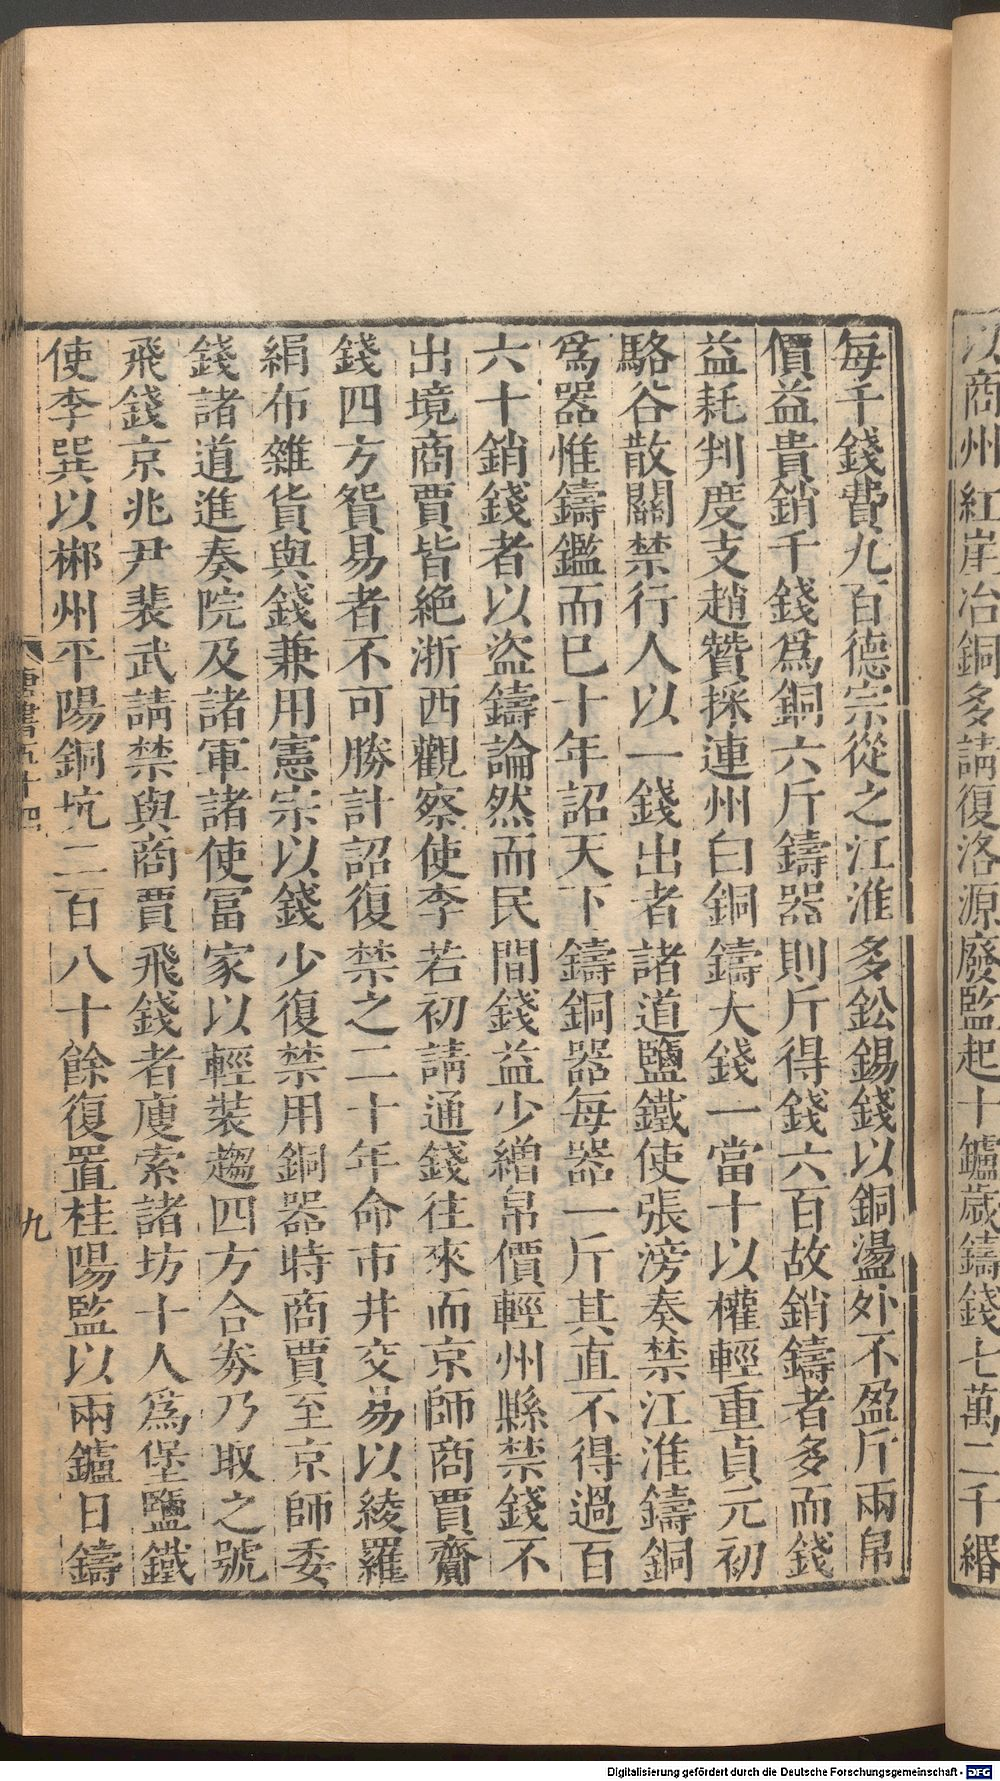 江商州紅崖冶銅多請復洛源廢監起十鑪歲鑄錢七萬二千緡
每千錢費九百德宗從之江淮多鉛錫錢以銅盪外不盈斤兩帛
價益貴銷千錢爲銅六斤鑄器則斤得錢六百故銷鑄者多而錢
益耗判度支趙贊採連州白銅鑄大錢一當十以權輕重貞元初
駱谷散關禁行人以一錢出者諸道鹽鐵使張滂奏禁江淮鑄銅
爲器惟鑄鑑而巳十年詔天下鑄銅器每器一斤其直不得過百
六十銷錢者以盜鑄論然而民間錢益少繒帛價輕州縣禁錢不
出境商賈皆絶浙西觀察使李若初請通錢往來而京師商賈齎
錢四方貿易者不可勝計詔復禁之二十年命市井交易以綾羅
絹布雜貨與錢兼用憲宗以錢少復禁用銅器時商賈至京師委
錢諸道進奏院及諸軍諸使冨家以輕裝趨四方合劵乃取之號
飛錢京兆尹裴武請禁與商賈飛錢者廋索諸坊十人爲堡鹽鐵
使李巽以郴州平陽銅坑二百八十餘復置桂陽監以兩鑪日鑄
唐書五十四
九
Digitalisierung gefördert durch die Deutsche Forschungsgemeinschaft - DFG